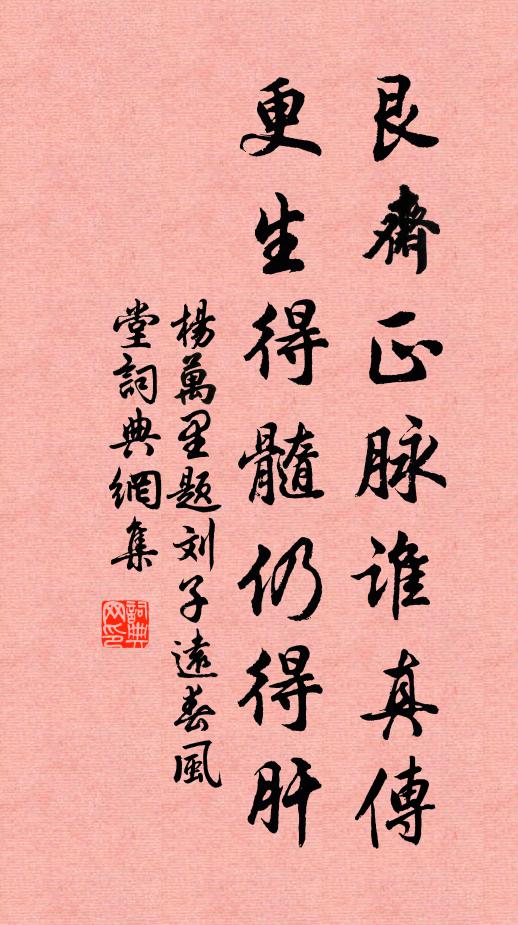 艮齋正脉誰真傳
更生得髓仍得肝
楊萬里题刘子遠春風
堂詞典網集
詞典
网印